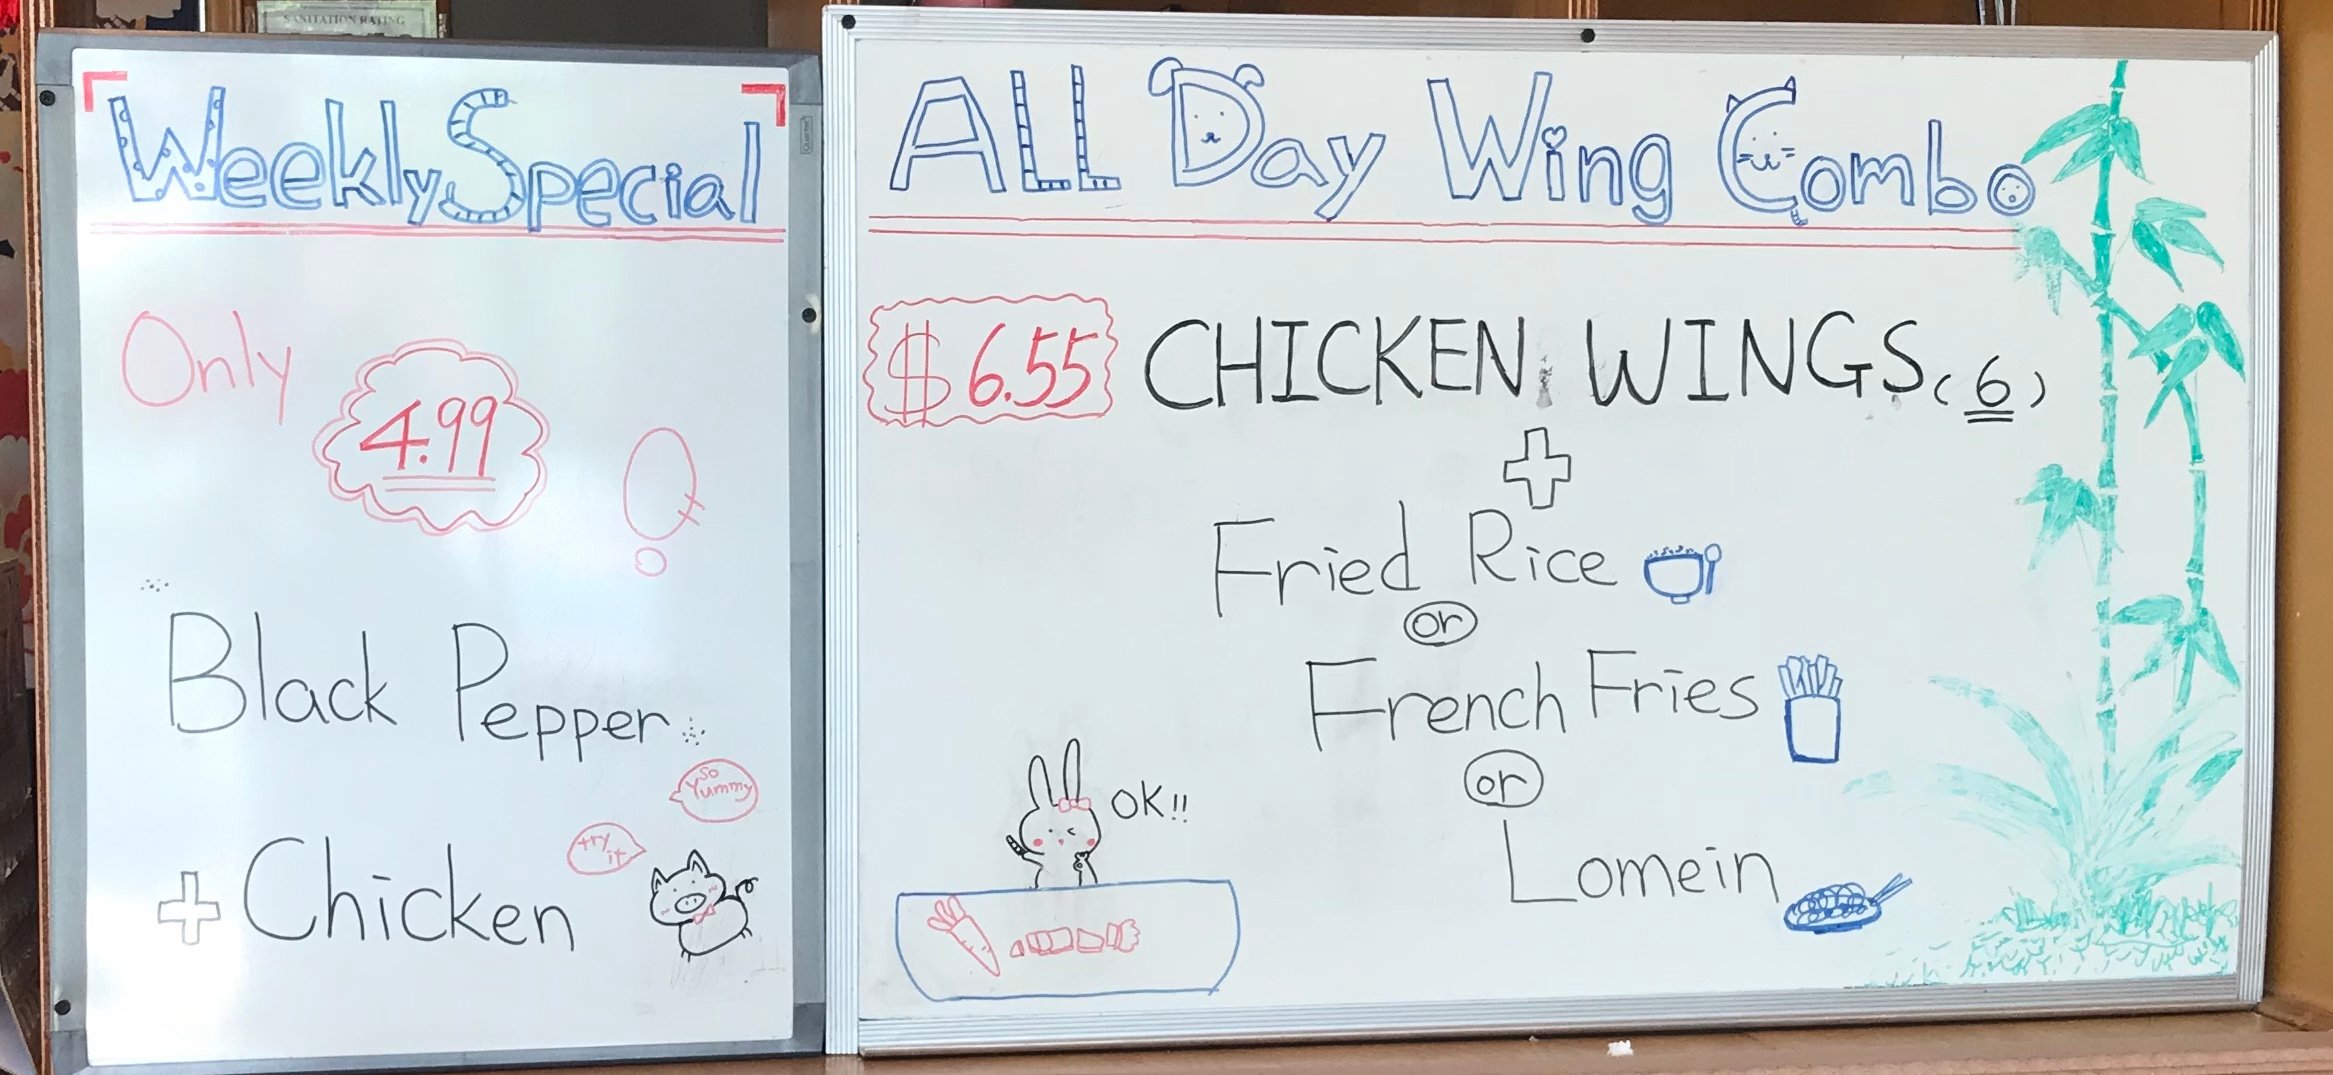 SANITATION RATING
Weekly Special
Only
4.99
Black Pepper
so
Yummy
try
it
+ Chicken
ALL Day Wing Combo
$6.55 CHICKEN WINGS (6)
+
Fried Rice
or
French Fries
or
Lomein
OK!!